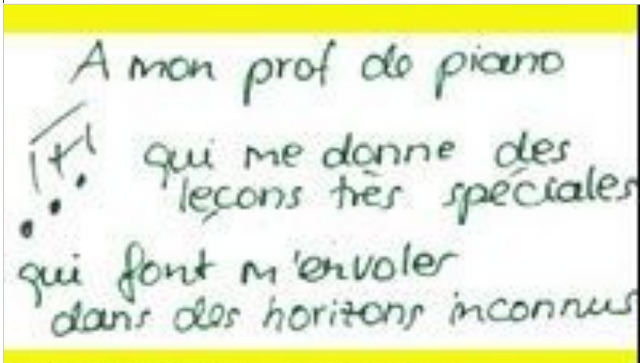 A mon prof de piano
qui me donne des
leçons très spéciales
qui font m'envoler
dans des horizons inconnus